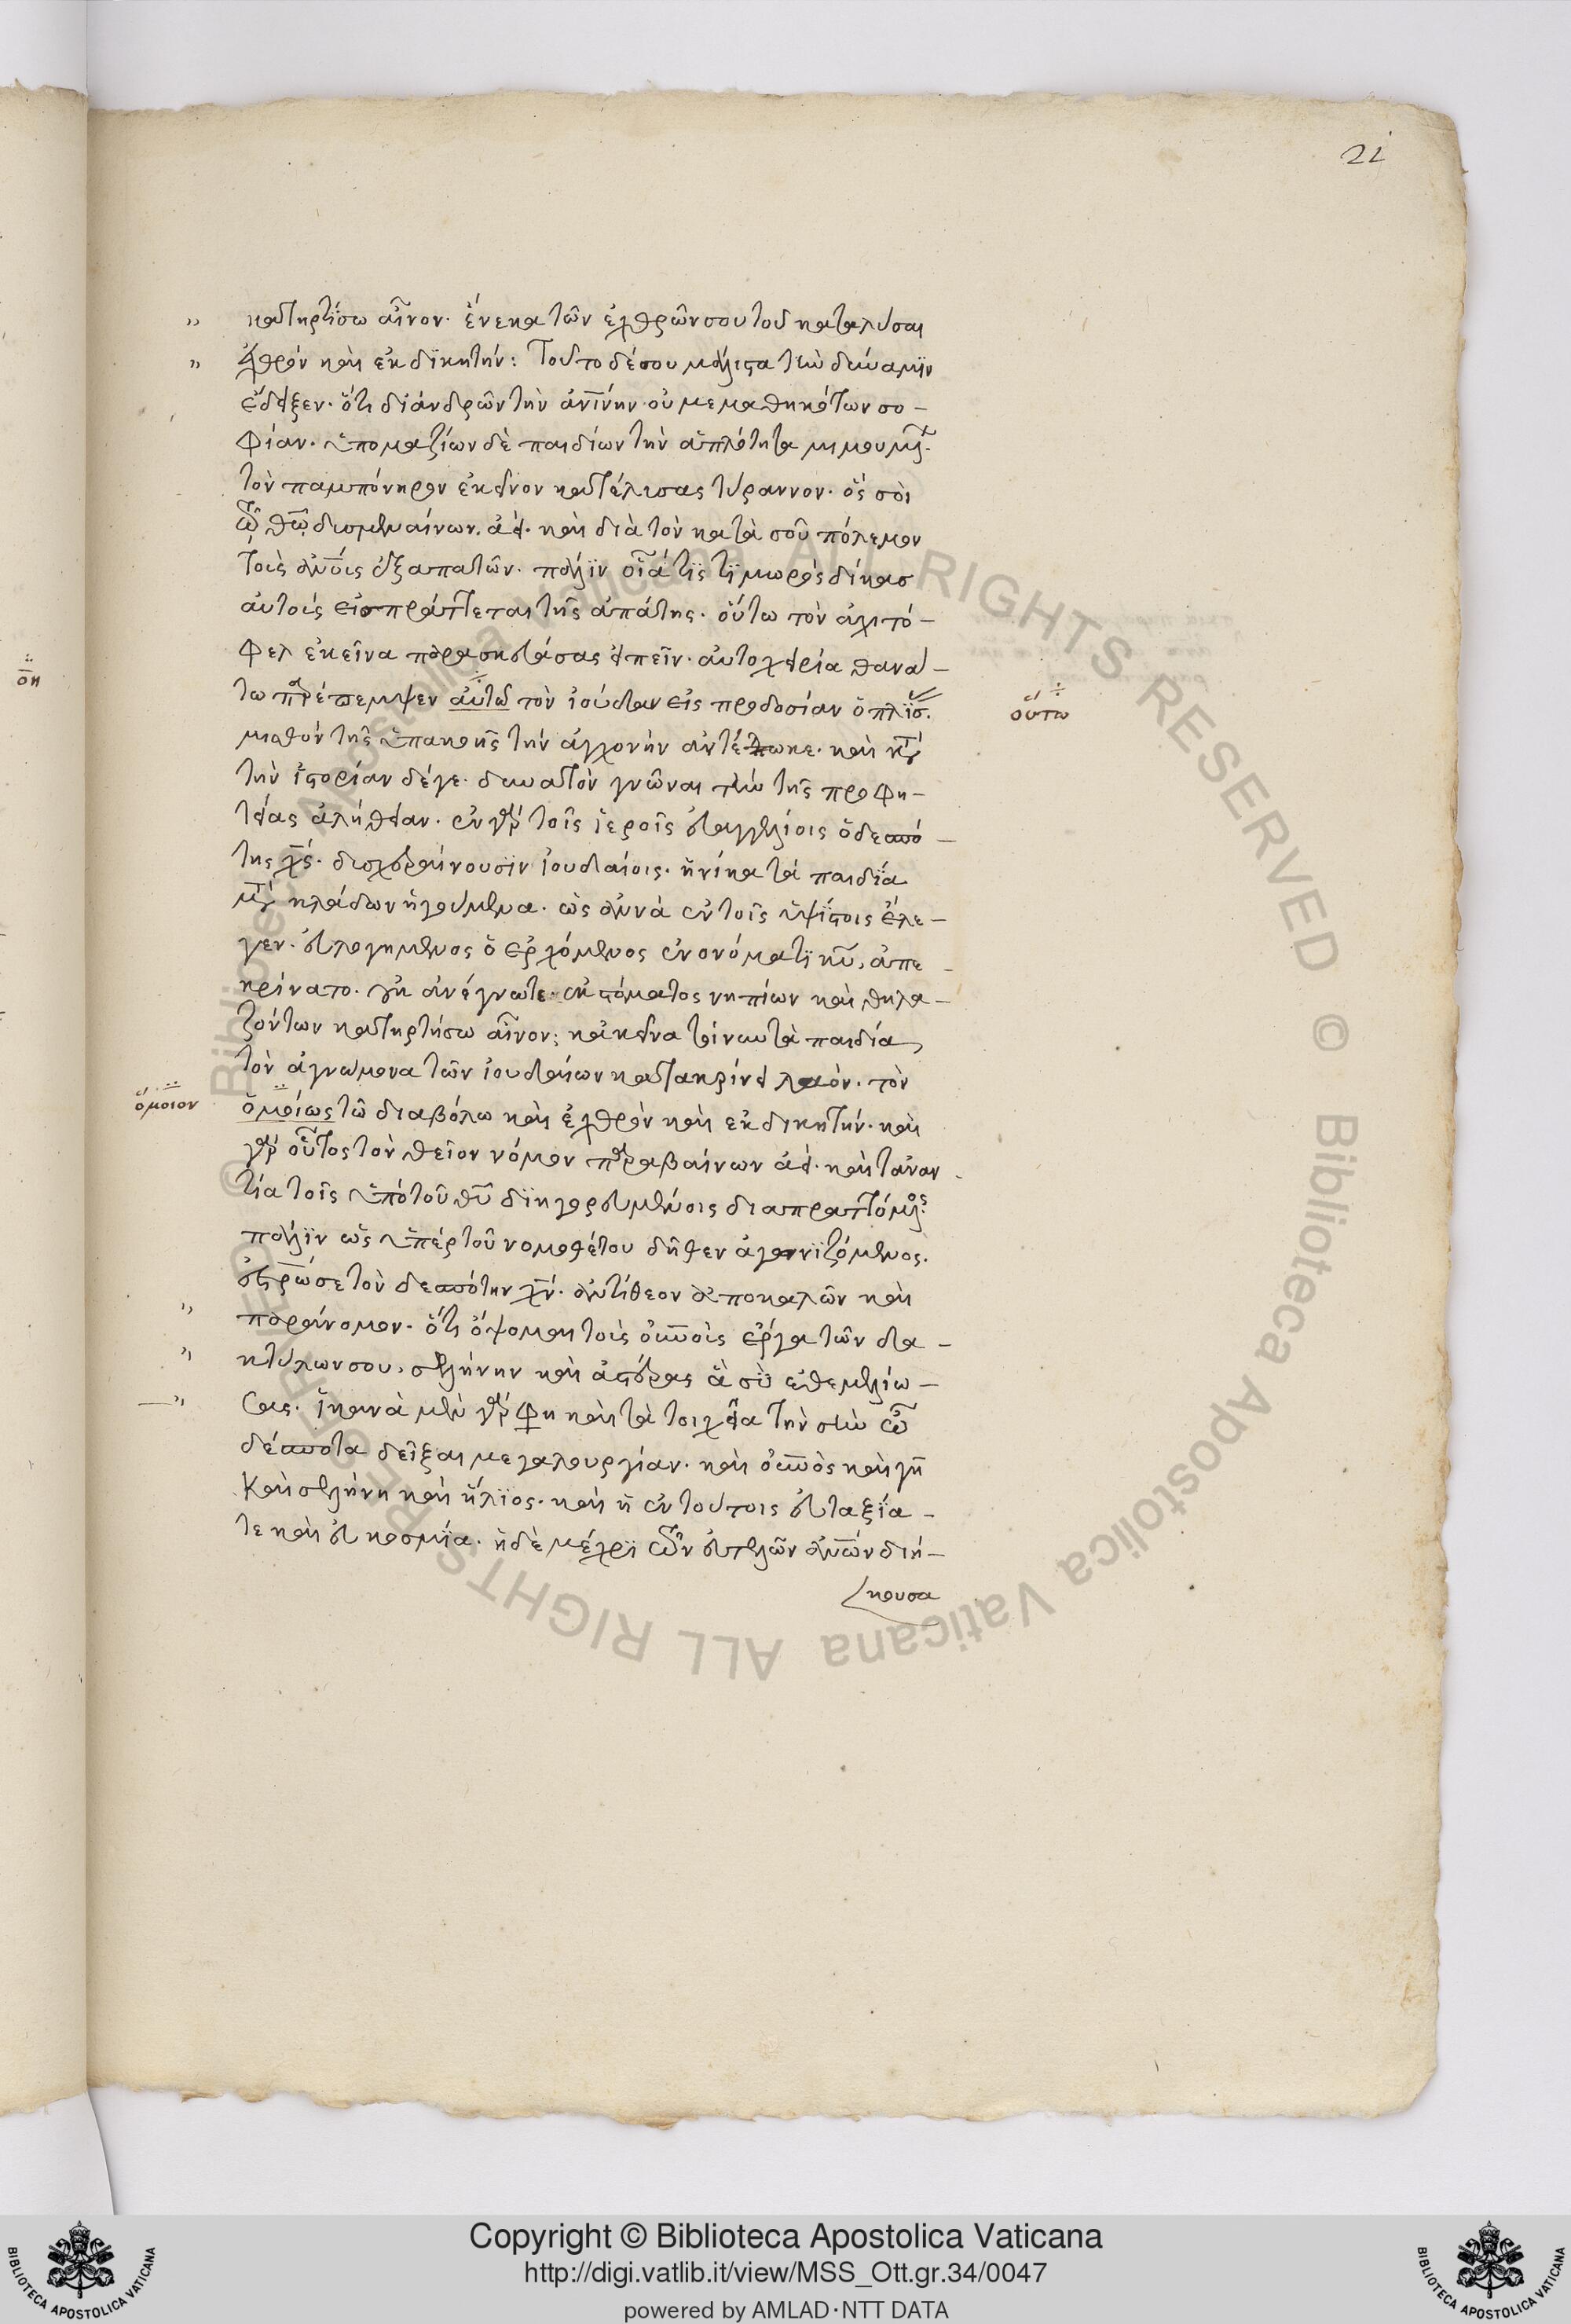 21
κατηρτίσω αἶνον. ἕνεκα τῶν ἐχθρῶν σου τοῦ καταλῦσαι
ἐχθρὸν καὶ ἐκδικητήν: Τοῦτο δέ σου μάλιστα τὴν δύναμιν
ἔδειξεν. ὅτι δι' ἀνδρῶν τὴν ἀνίνην οὐ μεμαθηκότων σο-
φίαν. ὑπομαζίων δὲ παιδίων τὴν ἁπλότητα μιμουμ
τὸν παμπόνηρον ἐκεῖνον κατέλυσας τύραννον. ὅς σοι
τῶ θῶ δυσμεναίνων. ἀεὶ. καὶ διὰ τὸν κατὰ σοῦ πόλεμον
τοὺς ἀνους ἐξαπατῶν. πάλιν οἷά τις τιμωρὸς δίκας
αὐτοὺς εἰσπράττεται τῆς ἀπάτης. οὕτω τὸν ἀχιτό-
φελ ἐκεῖνα παρασκευάσας εἰπεῖν. αὐτοχειρία θανά-
τω παρέπεμψεν αὐτῶ τὸν ἰούδαν εἰς προδοσίαν ὁπλίσ.
οὕτω
μισθὸν τῆς ὑπακοῆς τὴν ἀγχονὴν ἀντέδωκε. καὶ κτ
τὴν ἱστορίαν δέγε. δυνατὸν γνῶναι τὴν τῆς προφη-
τείας ἀλήθειαν. ἐν γὰρ τοῖς ἱεροῖς εὐαγγελίοις ὁ δεσπό-
της χς. δυσχεραίνουσιν ἰουδαίοις. ἡνίκα τὰ παιδία
μτ κλάδων ἡγούμενα. ὡς ἀννὰ ἐν τοῖς ὑψίστοις ἔλε-
γεν. εὐλογημένος ὁ ἐρχόμενος ἐν ονόματι κυ, ἀπε-
κρίνατο. οὐκ ἀνέγνωτε. ἐκ στόματος νηπίων καὶ θηλα-
ζόντων κατηρτίσω αἶνον; κἀκεῖνα τοίνυν τὰ παιδία,
τὸν ἀγνώμονα τῶν ἰουδαίων κατακρίνει λαόν. τὸν
ὅμοιον
ὁμοίως τῶ διαβόλω καὶ ἐχθρὸν καὶ ἐκδικητήν. καὶ
γὰρ οὗτος τὸν θεῖον νόμον παραβαίνων ἀεὶ. καὶ ταναν-
τία τοῖς ὑπὸ τοῦ θυ διηγορευμένοις διαπραττόμενος.
πάλιν ὡς ὑπὲρ τοῦ νομοθέτου δῆθεν ἀγωνιζόμενος.
ἐσταύρωσε τὸν δεσπότην χν. ἀντίθεον ἀποκαλῶν καὶ
παράνομον. ὅτι ὄψομαι τοὺς οὐνοὺς ἔργα τῶν δα-
κτύλων σου, σελήνην καὶ ἀστέρας ἃ σὺ ἐθεμελίω-
σας. ἱκανὰ μὲν γάρ φη καὶ τὰ στοιχεῖα τὴν σὴν ὦ
δέσποτα δεῖξαι μεγαλουργίαν. καὶ οὐνὸς καὶ γῆ
καὶ σελήνη καὶ ἥλιος. καὶ ἡ ἐν τούτοις εὐταξία-
τε καὶ εὐκοσμία. ἡ δὲ μέχρι τῶν εὐτελῶν ἀνων διή-
κουσα
Copyright © Biblioteca Apostolica Vaticana
http://digi.vatlib.it/view/MSS_Ott.gr.34/0047
powered by AMLAD·NTT DATA
BIBLIOTECA APOSTOLICA VATICANA
BIBLIOTECA APOSTOLICA VATICANA
© Biblioteca Apostolica Vaticana ALL RIGHTS RESERVED © Biblioteca Apostolica Vaticana ALL RIGHTS RESERVED